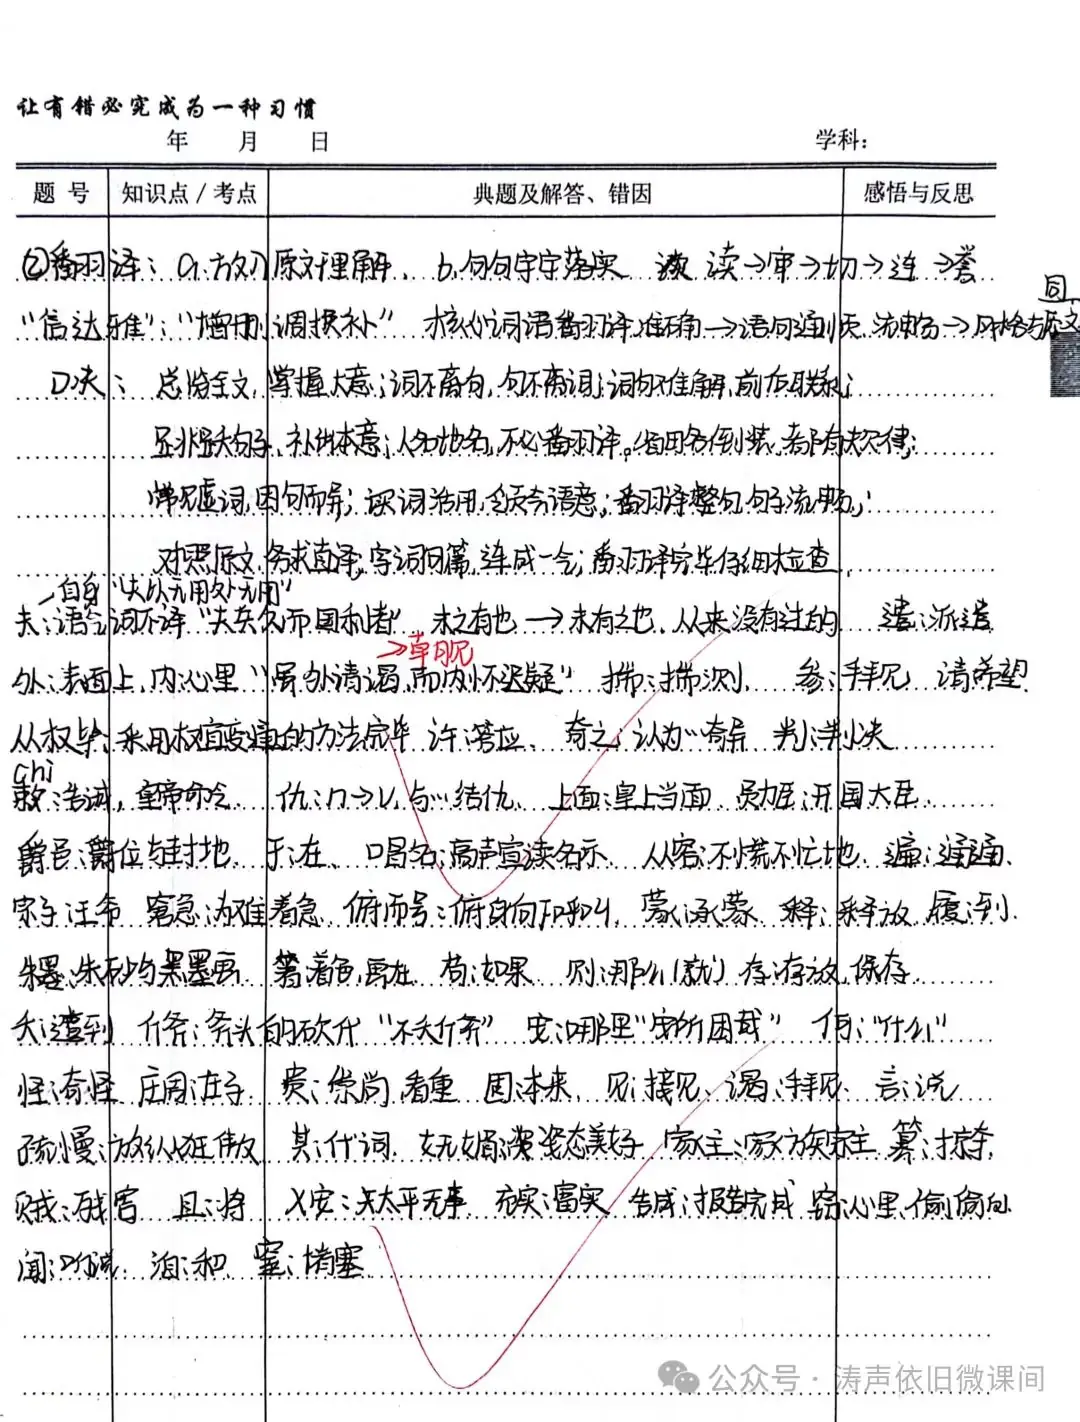 让有错必究成为一种习惯
年 月 日 学科:
题 号 知识点/考点 典题及解答、错因 感悟与反思
②翻译: a.放入原文理解、 b.句句字字落实 读→审→切→连→誊
同
"信达雅":"增删调换补" 核心词语翻译准确→语句通顺流畅→风格与原文
口诀: 总览全文,掌握大意;词不离句,句不离词;词句难解,前后联系;
是非疑大句子、补出本意;人名地名,不必翻译。省用名倒装,都有规律;
常见虚词,因句而异;实词活用,领会语意;翻译整句,句子流畅;
对照原文,务求直译;字词句篇,连成一气;翻译完毕仔细检查
自身"夫以无用处无用"
夫:语气词不译 "夫专欠而国利者" 未之有也→未有之也、从来没有过的 遣:派遣
→卓昵
外:表面上,内:心里"虽外请谒,而内怀迟疑" 揣:揣测、 参:拜见 请:希望
从权毕:采用权宜变通的方法完毕 许:答应、 奇之:认为…奇异 判:判决
chi
敕:告诫,皇帝命令 仇:n→v.与…结仇 上面:皇上当面 勋臣:开国大臣
爵邑:爵位与封地、于:在、 唱名:高声宣读名字 从容:不慌不忙地 遍:通通、
窘急:为难着急 俯而号:俯身向下呼叫、蒙:承蒙 释:释放 履:到
朱墨:朱砂与黑墨 著:着色,写在 苟:如果 则:那么(就) 存:存放,保存
夭:遭到 斤斧:斧头的砍伐"不夭斤斧" 安:哪里"安所困哉" 何:"什么"
怪:奇怪 庄周:庄子 贵:崇尚,看重 固:本来、 见:接见、 谒:拜见 言:说
疏慢:放纵狂傲 其:代词、妩媚:姿态美好 家主:家族宗主 篡:掠夺
贼:残害 且:将 乂安:太平无事 充实:富实 告成:报告完成 窃:心里、偷偷地
闻:听说 洎:和、 窒:堵塞
公众号·涛声依旧微课间